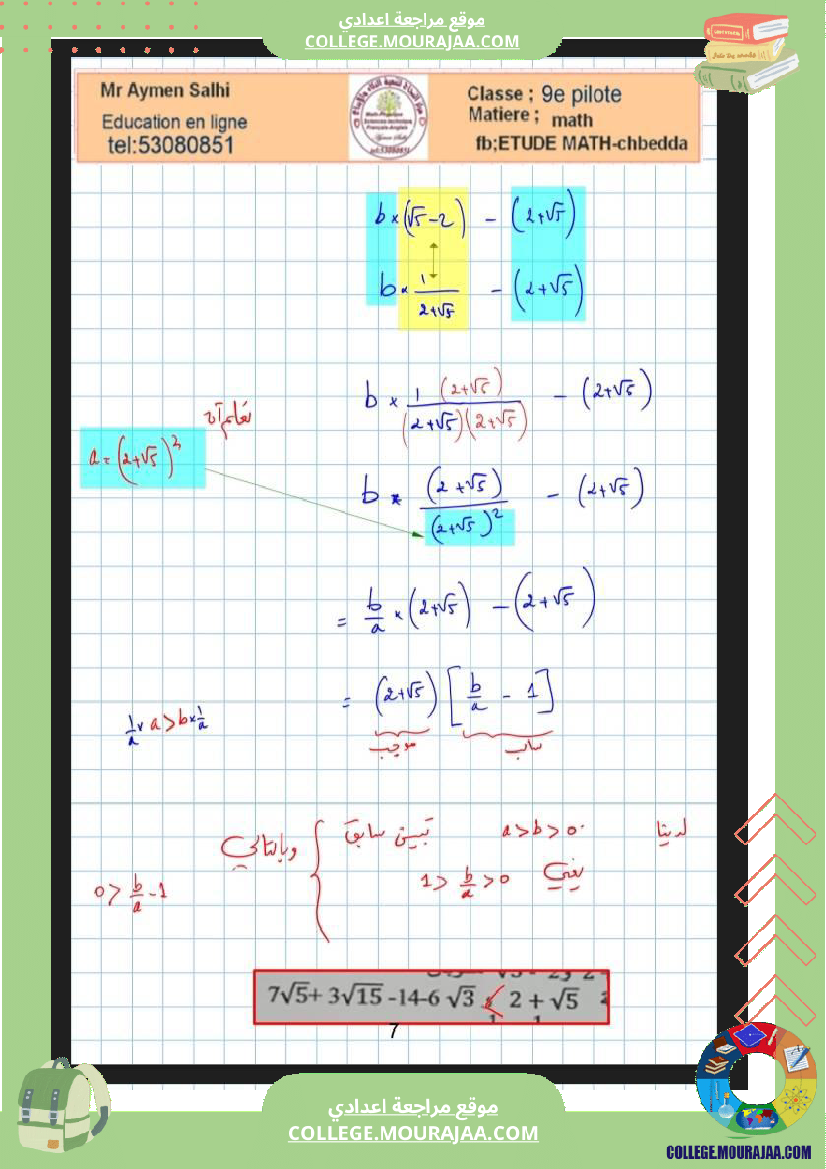 موقع مراجعة اعدادي
COLLEGE.MOURAJAA.COM
Mr Aymen Salhi
Education en ligne
tel:53080851
Classe ; 9e pilote
Matiere ; math
fb;ETUDE MATH-chbedda
b × (√5-2) - (2+√5)
b × 1/(2+√5) - (2+√5)
b × 1(2+√5)/(2+√5)(2+√5) - (2+√5)
a = (2+√5)²
b × (2+√5)/(2+√5)² - (2+√5)
= b/a × (2+√5) - (2+√5)
= (2+√5) [b/a - 1]
موجب
سالب
1/a × a > b × 1/a
لدينا a > b > 0 تبين سابق
وبالتالي
يعني 1 > b/a > 0
0 > b/a - 1
7√5+ 3√15 -14-6 √3 < 2 + √5
7
موقع مراجعة اعدادي
COLLEGE.MOURAJAA.COM
COLLEGE.MOURAJAA.COM